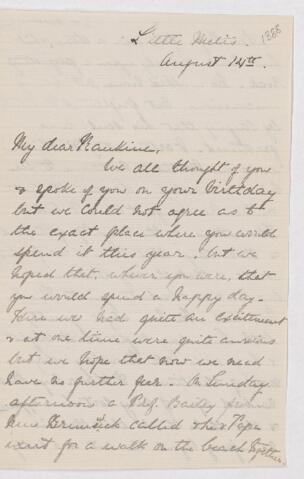 Little Metis. 1888
August 14th.
My dear Rankine,
We all thought of you
& spoke of you on your birthday
but we could not agree as to
the exact place where you would
spend it this year. but we
hoped that, where you were, that
you would spend a happy day.
Here we had quite an excitement
& at one time were quite anxious
but we hope that now we need
have no further fear. On Sunday
afternoon a Prof. Bailey from
New Brunswick called & he & Papa
went for a walk on the beach together